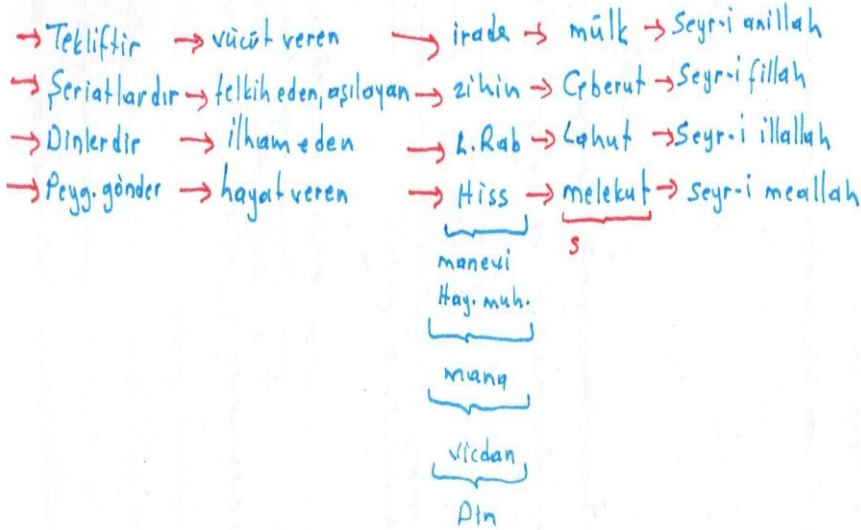 → Tekliftir → vücut veren → irade → mülk → Seyr-i anillah
→ Şeriatlardır → telkih eden, aşılayan → zihin → Ceberut → Seyr-i fillah
→ Dinlerdir → ilham eden → L.Rab → Lahut → Seyr-i illallah
→ Peyg. gönder → hayat veren → Hiss → melekut → seyr-i meallah
s
manevi
Hay. muh.
mana
vicdan
Din